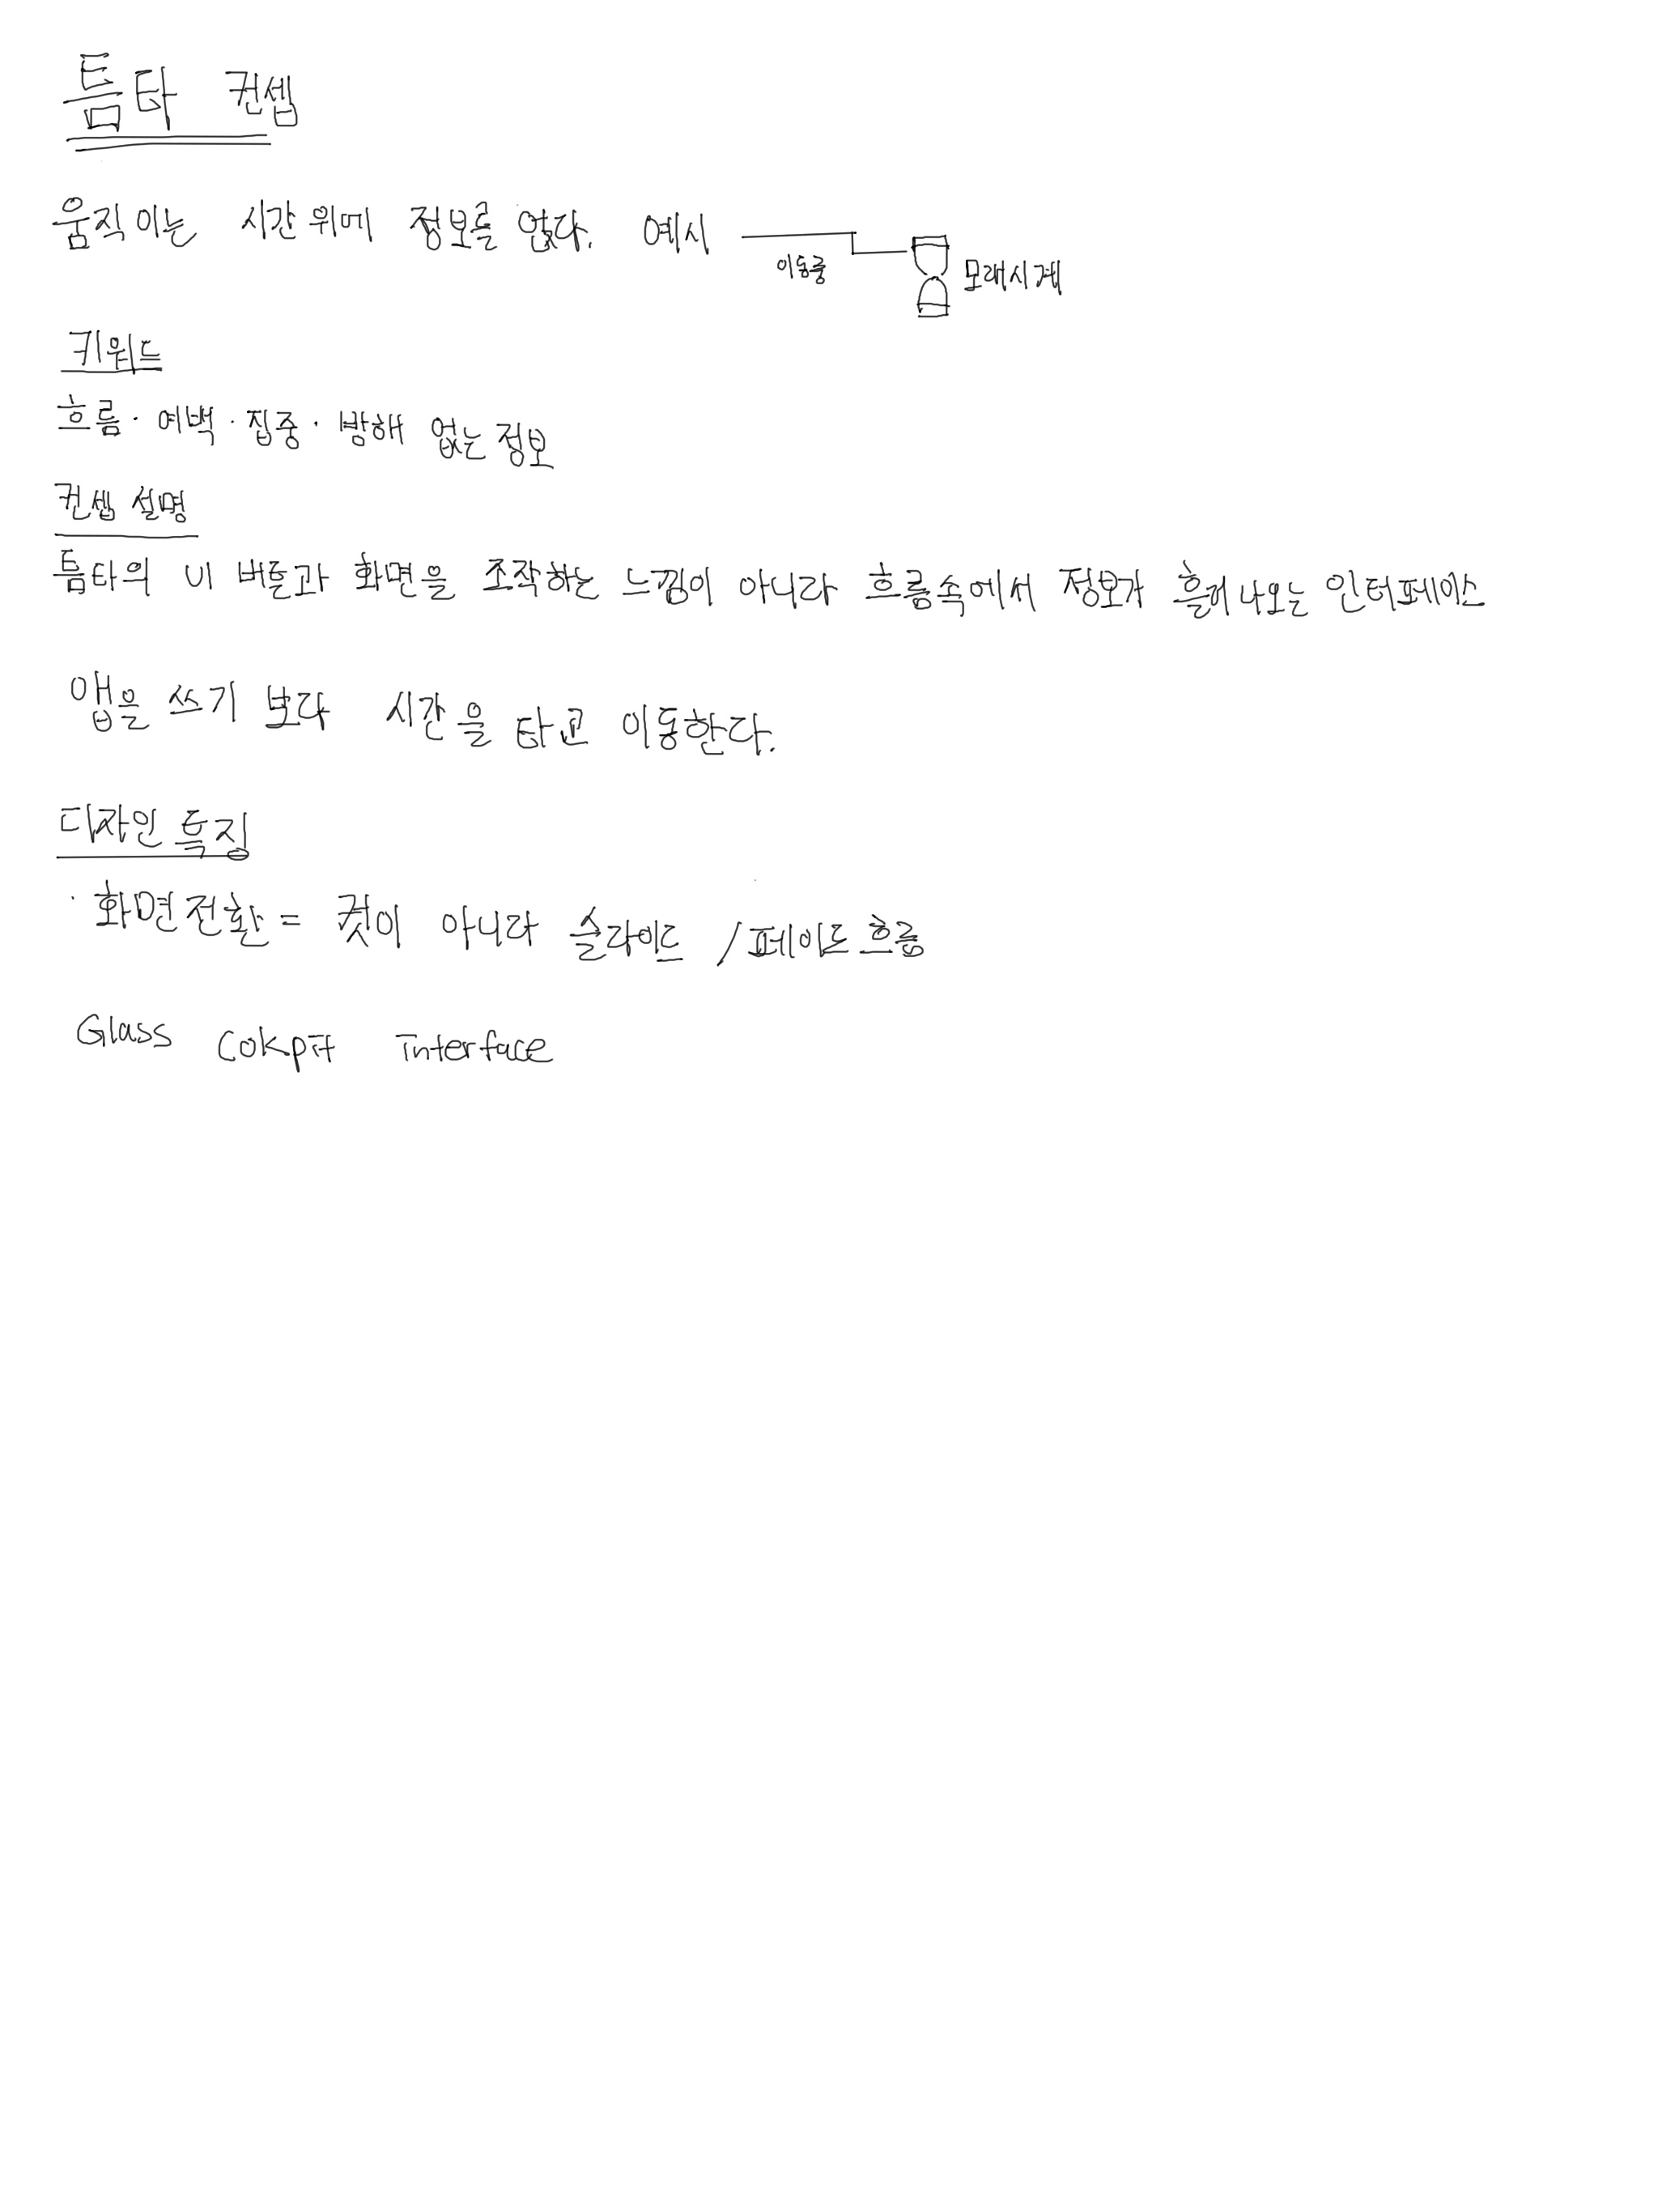 틈타 컨셉
움직이는 시간위에 정보를 얹다. 예시 이동중 모래시계
키워드
흐름 · 여백 · 집중 · 방해 없는 정보
컨셉 설명
틈타의 UI 버튼과 화면을 조작하는 느낌이 아니라 흐름속에서 정보가 흘러나오는 인터페이스
앱을 쓰기 보다 시간을 타고 이동한다.
디자인 특징
· 화면전환 = 컷이 아니라 슬라이드 / 페이드 흐름
Glass Cokpit interface